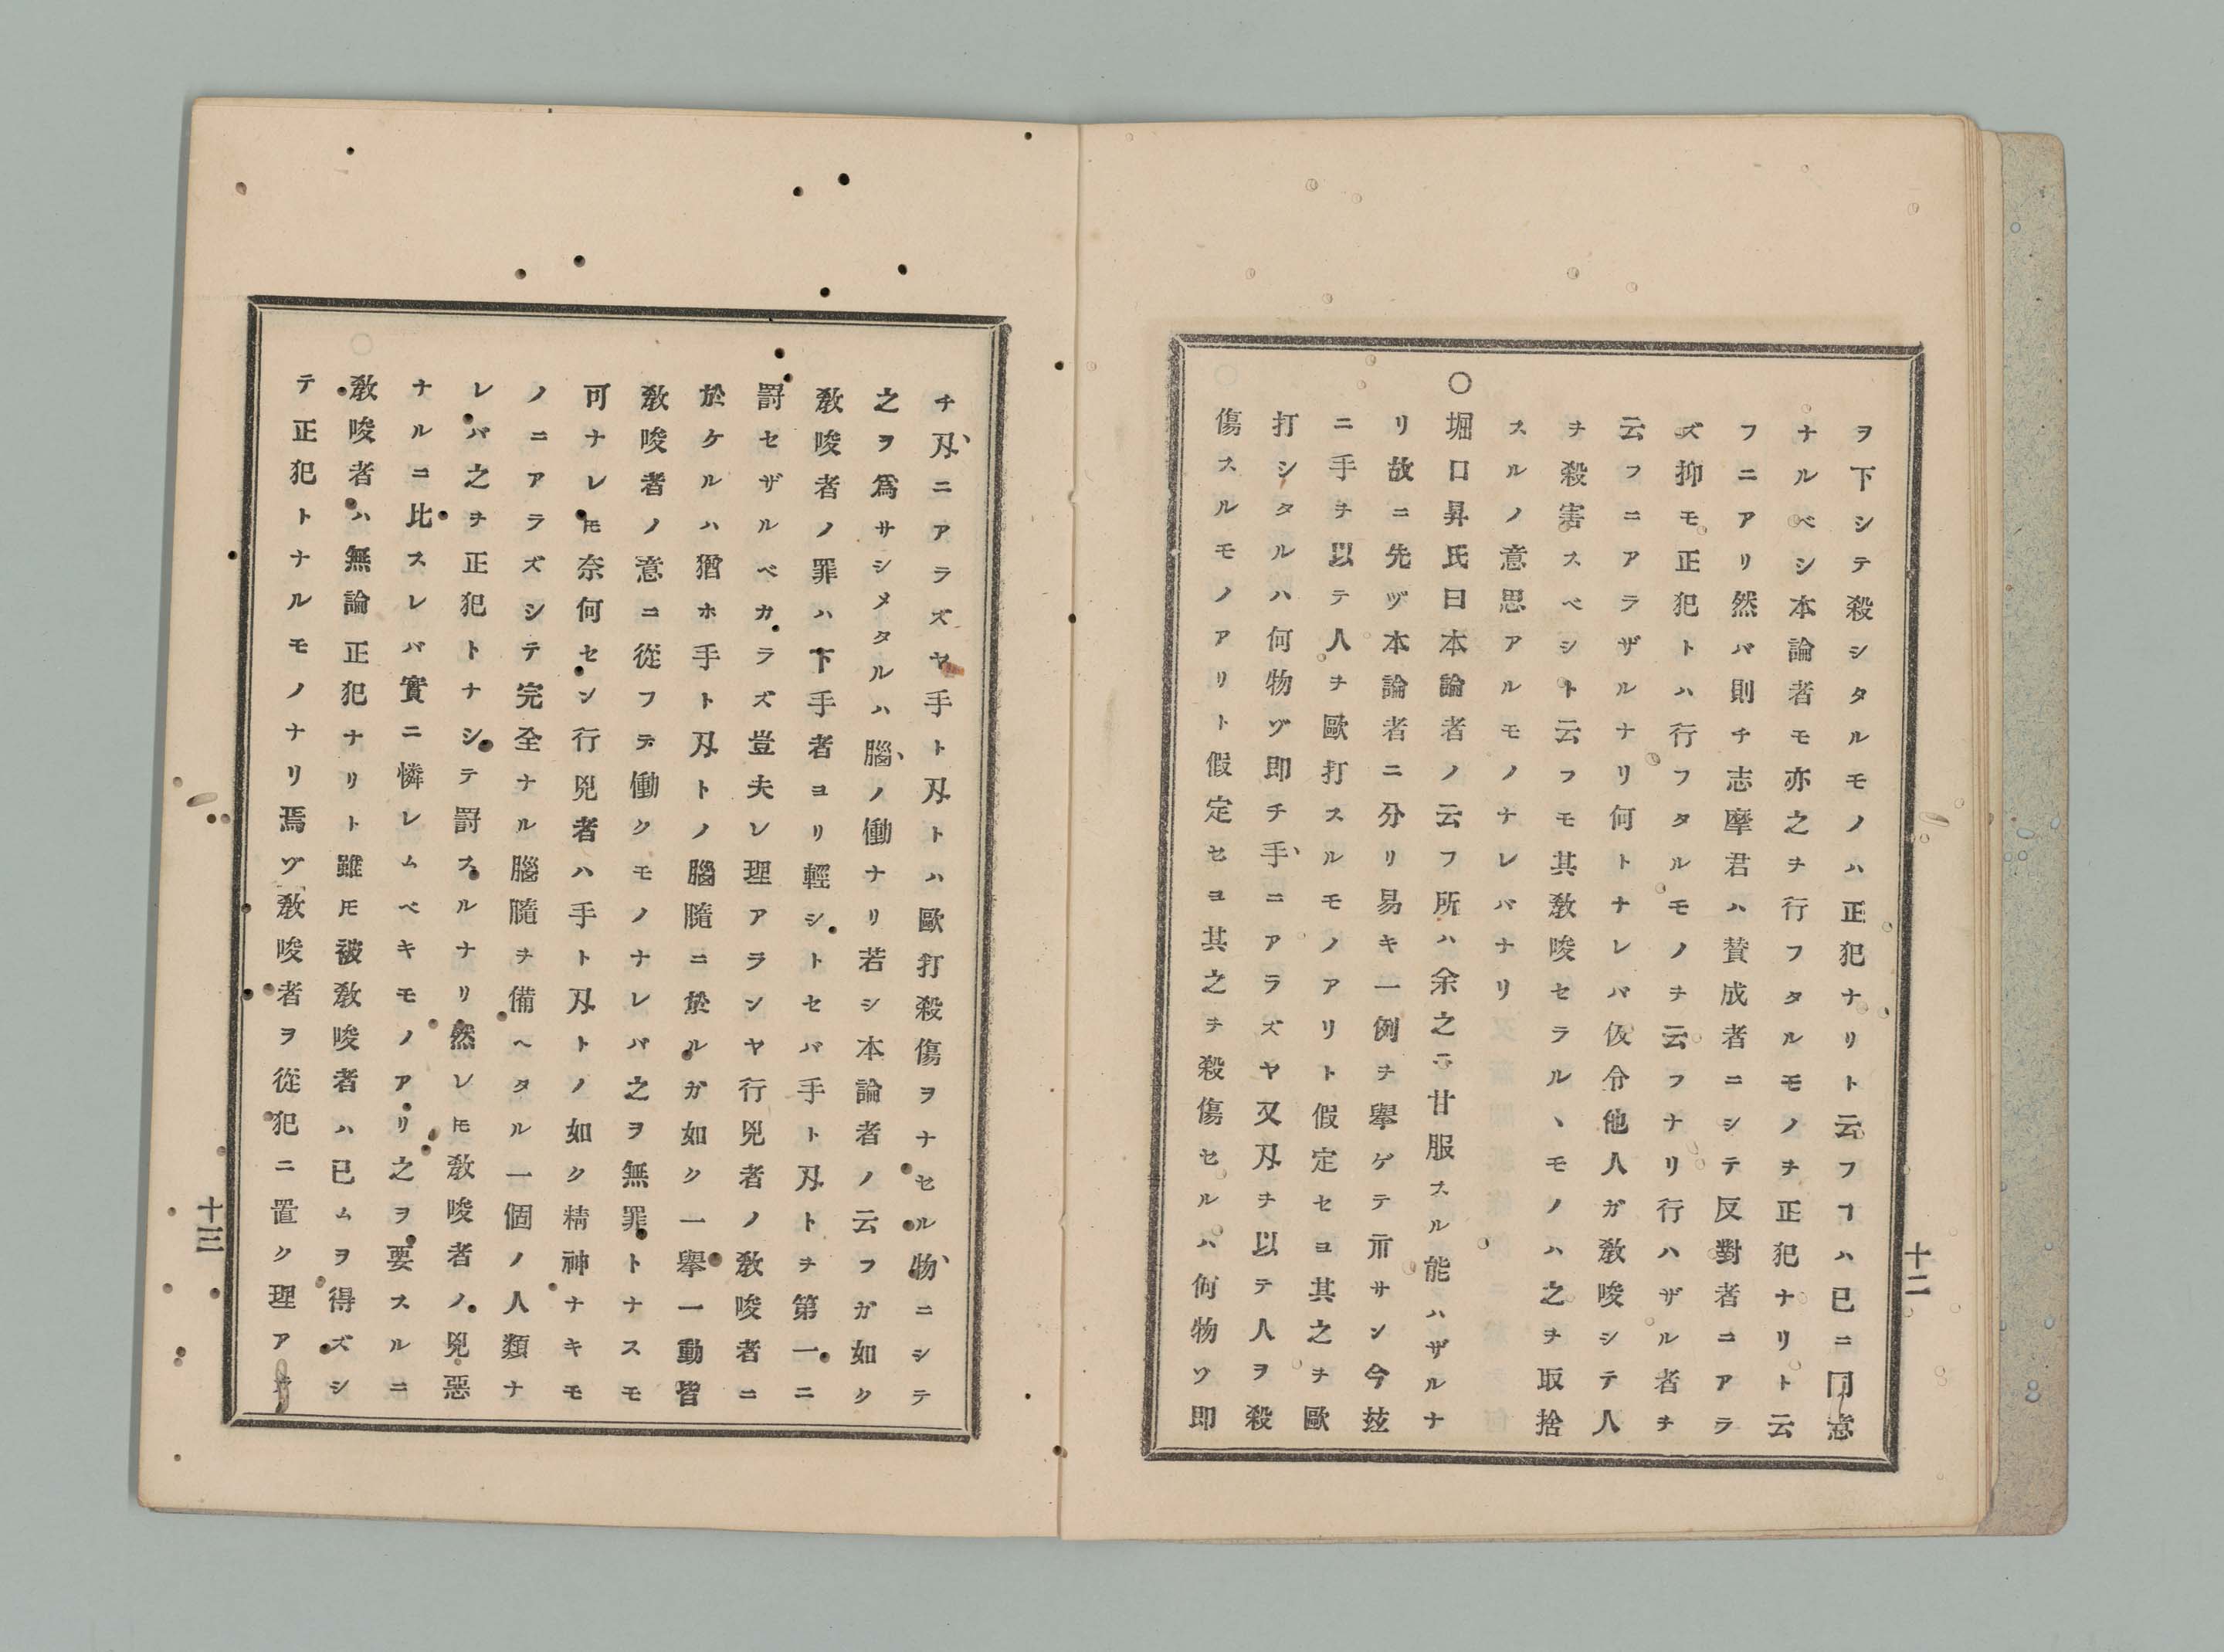 十二
ヲ下シテ殺シタルモノハ正犯ナリト云フヿハ已ニ同意
ナルベシ本論者モ亦之ヲ行フタルモノヲ正犯ナリト云
フニアリ然バ則チ志摩君ハ賛成者ニシテ反對者ニアラ
ズ抑モ正犯トハ行フタルモノヲ云フナリ行ハザル者ヲ
云フニアラザルナリ何トナレバ仮令他人ガ敎唆シテ人
ヲ殺害スベシト云フモ其敎唆セラルヽモノハ之ヲ取捨
スルノ意思アルモノナレバナリ
〇堀口昇氏曰本論者ノ云フ所ハ余之ニ甘服スル能ハザルナ
リ故ニ先ヅ本論者ニ分リ易キ一例ヲ擧ゲテ示サン今玆
ニ手ヲ以テ人ヲ毆打スルモノアリト假定セヨ其之ヲ毆
打シタルハ何物ヅ即チ手ニアラズヤ又刄ヲ以テ人ヲ殺
傷スルモノアリト假定セヨ其之ヲ殺傷セルハ何物ヅ即
チ刄ニアラズヤ手ト刄トハ毆打殺傷ヲナセル物ニシテ
之ヲ爲サシメタルハ腦ノ働ナリ若シ本論者ノ云フガ如ク
敎唆者ノ罪ハ下手者ヨリ輕シトセバ手ト刄トヲ第一ニ
罸セザルベカラズ豈夫レ理アランヤ行兇者ノ敎唆者ニ
於ケルハ猶ホ手ト刄トノ腦髓ニ於ルガ如ク一擧一動皆
敎唆者ノ意ニ從フテ働クモノナレバ之ヲ無罪トナスモ
可ナレ𪜈奈何セン行兇者ハ手ト刄トノ如ク精神ナキモ
ノニアラズシテ完全ナル腦髓ヲ備ヘタル一個ノ人類ナ
レバ之ヲ正犯トナシテ罸スルナリ然レ𪜈敎唆者ノ兇惡
ナルニ比スレバ實ニ憐レムベキモノアリ之ヲ要スルニ
敎唆者ハ無論正犯ナリト雖𪜈被敎唆者ハ已ムヲ得ズシ
テ正犯トナルモノナリ焉ヅ敎唆者ヲ從犯ニ置ク理ア
十三